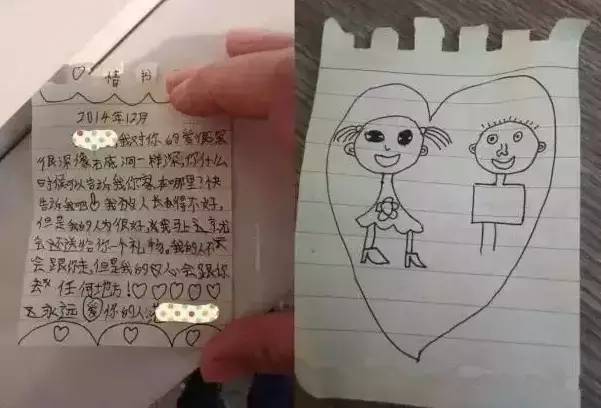 ♡ 情 书
2014年12月
我对你的爱很深
很深像无底洞一样深,你什么
时候可以告诉我你家本哪里?快
告诉我吧!我的人长本得不好,
但是我的人为很好,我马上
会还送给你一个礼物。我的人不
会跟你走,但是我的心会跟你
去任何地方!♡♡♡♡♡
永远爱你的人